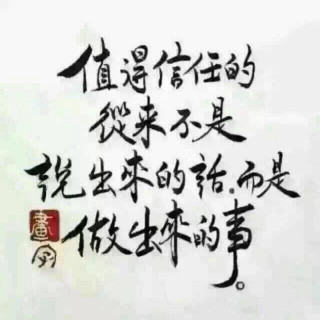 值得信任的
從来不是
説出來的話,而是
做出來的事。
畫
字